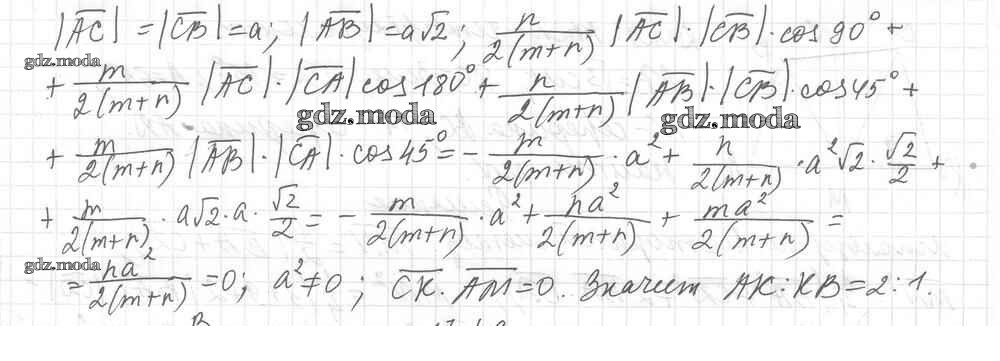 |AC| = |CB| = a; |AB| = a√2; n/2(m+n) |AC|·|CB|·cos 90° +
gdz.moda
+ m/2(m+n) |AC|·|CA| cos 180° + n/2(m+n) |AB|·|CB|·cos 45° +
gdz.moda gdz.moda
+ m/2(m+n) |AB|·|CA|·cos 45° = - m/2(m+n) · a² + n/2(m+n) · a²√2 · √2/2 +
+ m/2(m+n) · a√2 · a · √2/2 = - m/2(m+n) · a² + na²/2(m+n) + ma²/2(m+n) =
gdz.moda
= na²/2(m+n) = 0; a² ≠ 0; CK · AM = 0. Значит AK : KB = 2 : 1.